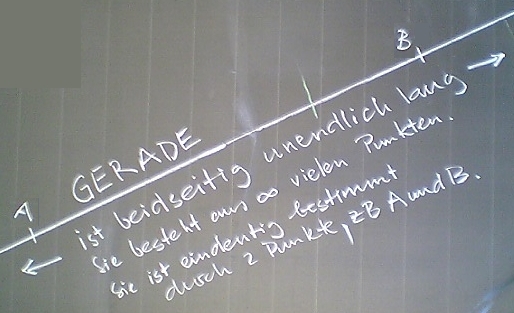 B
A
GERADE
ist beidseitig unendlich lang
Sie besteht aus ∞ vielen Punkten.
Sie ist eindeutig bestimmt
durch 2 Punkte, zB A und B.